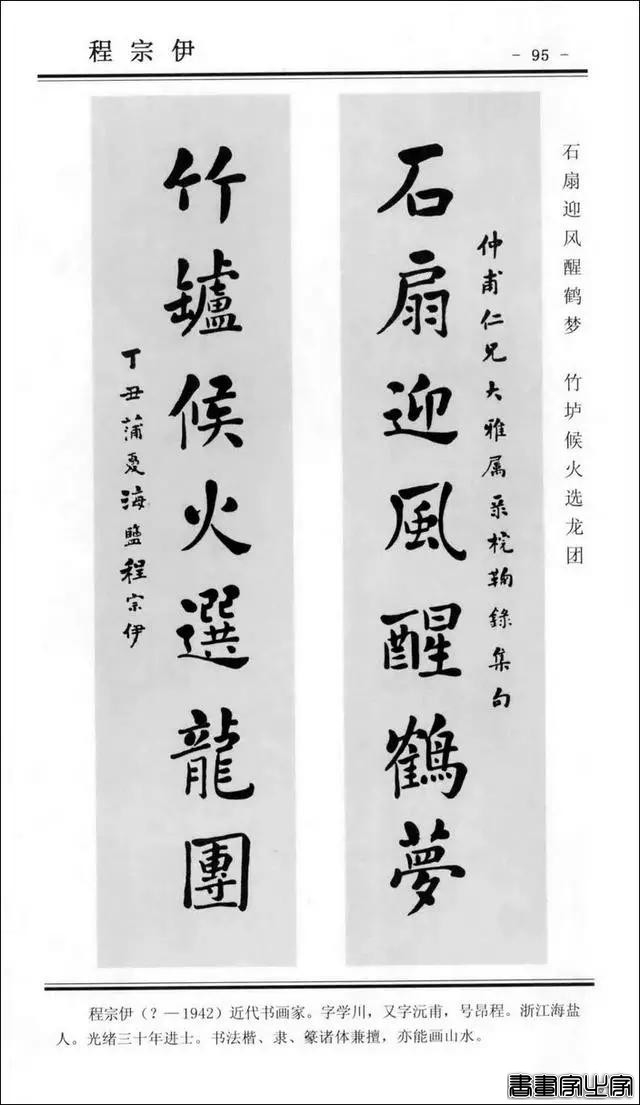 程宗伊
- 95 -
石扇迎风醒鹤梦 竹垆候火选龙团
仲甫仁兄大雅属采梡鞠錄集句
石扇迎風醒鶴夢
竹罏候火選龍團
丁丑蒲夏海鹽程宗伊
程宗伊（？—1942）近代书画家。字学川，又字沅甫，号昂程。浙江海盐
人。光绪三十年进士。书法楷、隶、篆诸体兼擅，亦能画山水。
書畫家之家